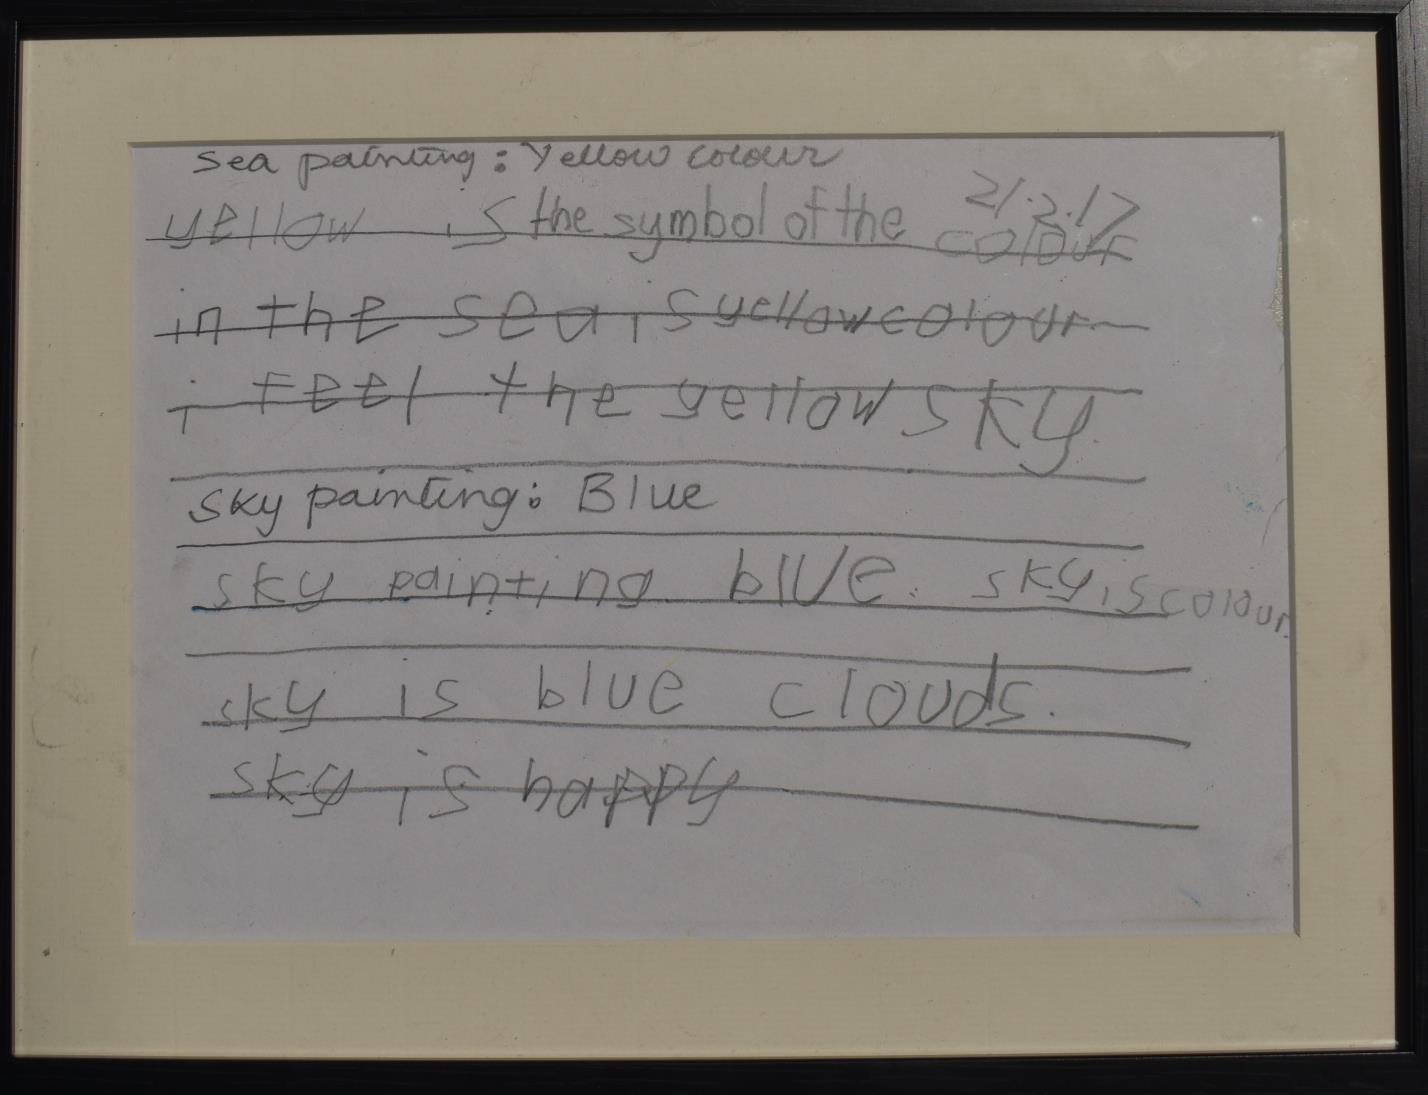 sea painting: Yellow colour
21.2.17
yellow is the symbol of the colour
in the sea is yellow colour
i feel the yellow sky.
sky painting: Blue
sky painting blue. sky is colour
sky is blue clouds.
sky is happy